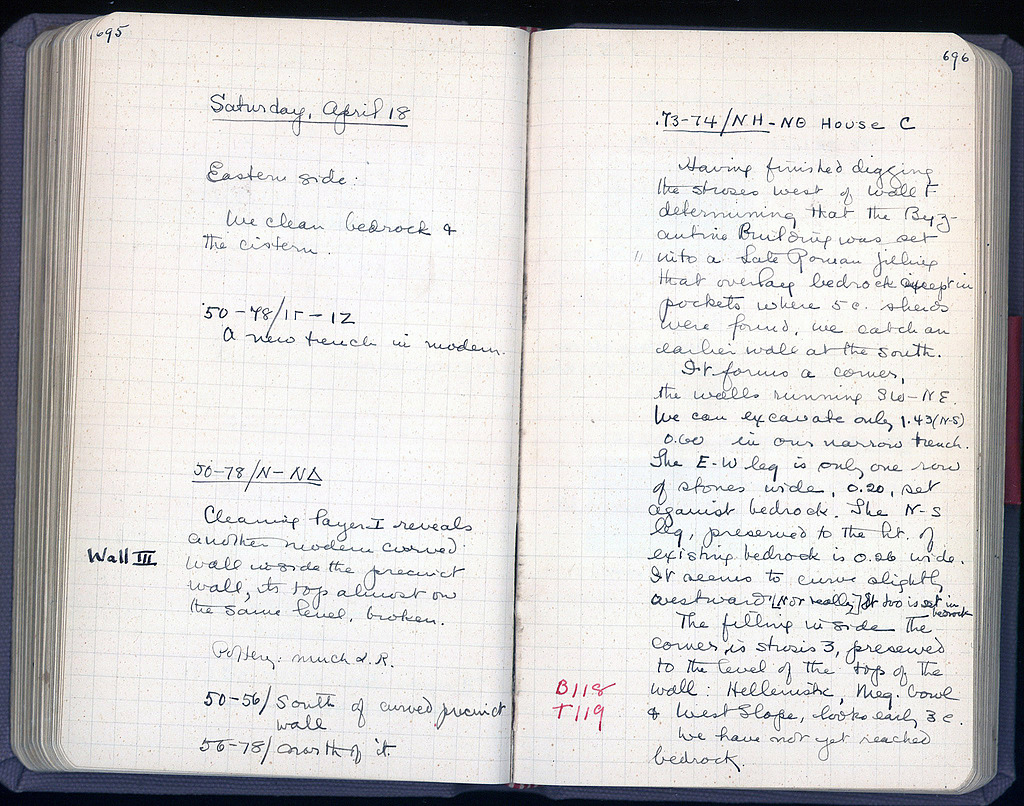 695
Saturday, April 18
Eastern side:
We clean bedrock &
the cistern.
50-78/ΙΓ-ΙΖ
A new trench in modern.
50-78/Ν-ΝΔ
Cleaning layer I reveals
another modern curved
Wall III
wall inside the precinct
wall, its top almost on
the same level, broken.
Pottery: much L.R.
50-56/ South of curved precinct
wall
56-78/ north of it
696
73-74/ΝΗ-ΝΘ House C
Having finished digging
the stroses west of wall F
determining that the Byz-
antine Building was set
into a Late Roman filling
that overlay bedrock except in
pockets where 5 c. sherds
were found, we catch an
earlier wall at the south.
It forms a corner,
the walls running SW-NE.
We can excavate only 1.43 (N-S)
0.60 in our narrow trench.
The E-W leg is only one row
of stones wide, 0.20, set
against bedrock. The N-S
leg, preserved to the ht. of
existing bedrock is 0.26 wide.
It seems to curve slightly
westward [Not really] It too is set in
bedrock
The filling inside the
corner is strosis 3, preserved
to the level of the top of the
B118
wall: Hellenistic, Meg. bowl
T119
& West Slope, looks early 3 c.
We have not yet reached
bedrock.